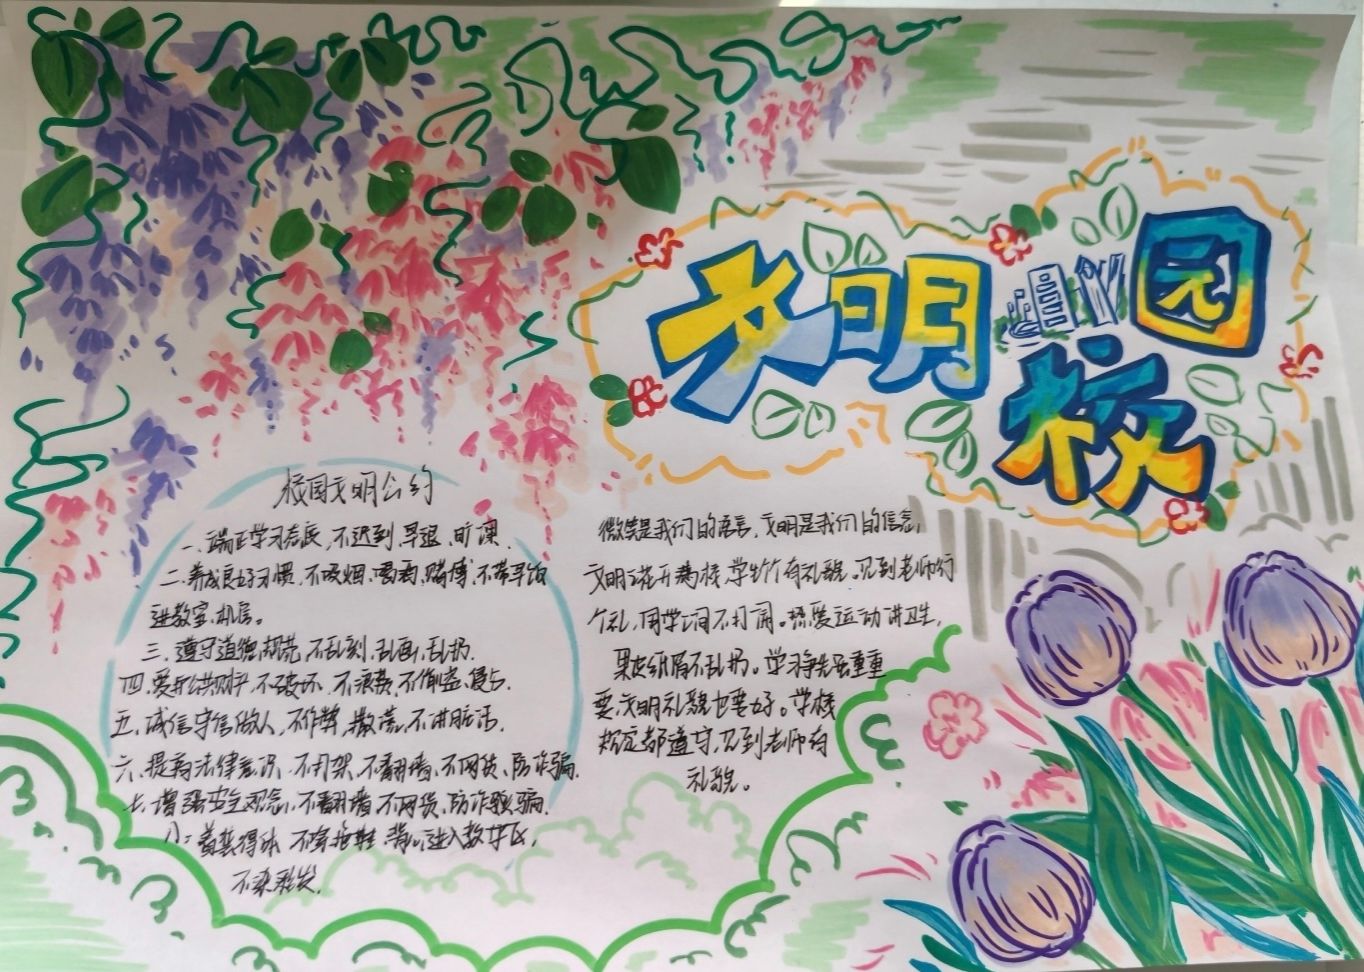 文明
校园
校园文明公约
一、端正学习态度,不迟到、早退、旷课.
二、养成良好习惯,不吸烟、喝酒、赌博,不带早饭
进教室、机房。
三、遵守道德规范,不乱刻、乱画、乱扔.
四、爱护公共财产,不破坏、不浪费、不偷盗、侵占.
五、诚信守信做人,不作弊、撒谎、不讲脏话.
六、提高法律意识,不打架、不翻墙、不网贷、防诈骗.
七、增强安全观念,不翻墙、不网贷、防诈骗.
八:着装得体,不穿拖鞋、背心进入教学区,
不染彩发.
微笑是我们的语言,文明是我们的信念,
文明之花开满校,学生个个有礼貌。见到老师行
个礼,同学之间不打闹。热爱运动讲卫生,
果皮纸屑不乱扔。学习争先虽重
要,文明礼貌也要好。学校
规定都遵守,见到老师有
礼貌。